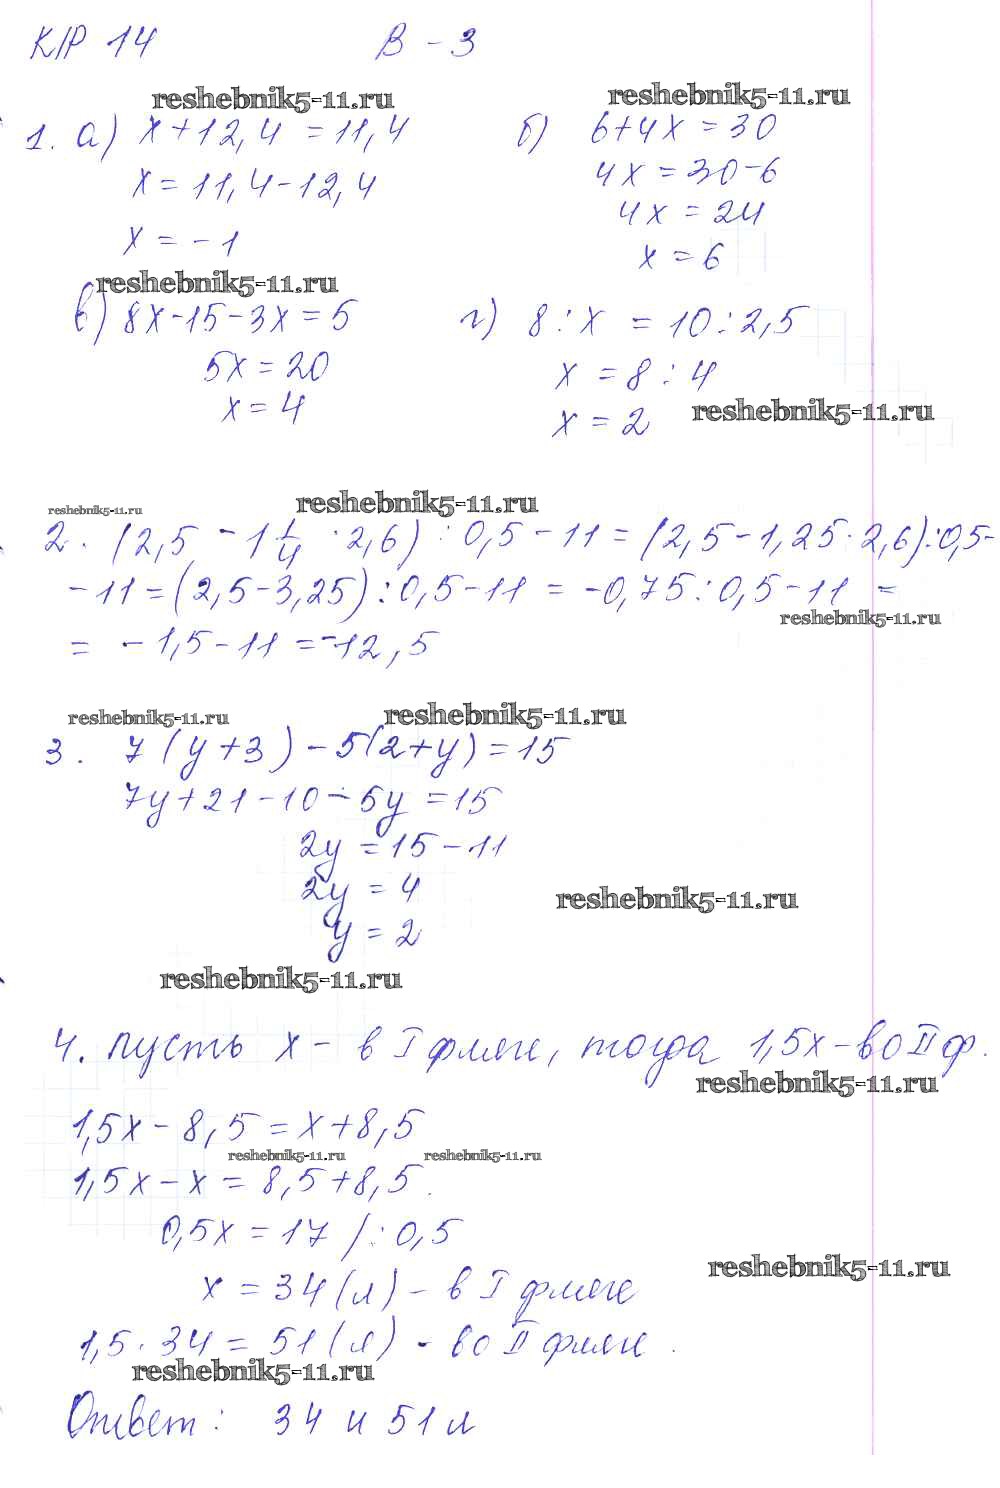 К/Р 14 В - 3
reshebnik5-11.ru reshebnik5-11.ru
1. а) x + 12,4 = 11,4 б) 6+4x = 30
x = 11,4 - 12,4 4x = 30-6
4x = 24
x = - 1 x = 6
reshebnik5-11.ru
в) 8x-15-3x = 5 г) 8 : x = 10 : 2,5
5x = 20 x = 8 : 4
x = 4 x = 2
reshebnik5-11.ru
reshebnik5-11.ru reshebnik5-11.ru
2. (2,5 - 1 1/4 · 2,6) : 0,5 - 11 = (2,5 - 1,25 · 2,6) : 0,5-
- 11 = (2,5 - 3,25) : 0,5 - 11 = -0,75 : 0,5 - 11 =
reshebnik5-11.ru
= - 1,5 - 11 = -12,5
reshebnik5-11.ru reshebnik5-11.ru
3. 7 (y + 3) - 5(2+y) = 15
7y + 21 - 10 - 5y = 15
2y = 15 - 11
2y = 4
reshebnik5-11.ru
y = 2
reshebnik5-11.ru
4. пусть x - в I фляге, тогда 1,5x - во II ф.
reshebnik5-11.ru
1,5x - 8,5 = x + 8,5
reshebnik5-11.ru reshebnik5-11.ru
1,5x - x = 8,5 + 8,5.
0,5x = 17 / : 0,5
reshebnik5-11.ru
x = 34 (л) - в I фляге
1,5 · 34 = 51 (л) - во II фляге.
reshebnik5-11.ru
Ответ: 34 и 51 л